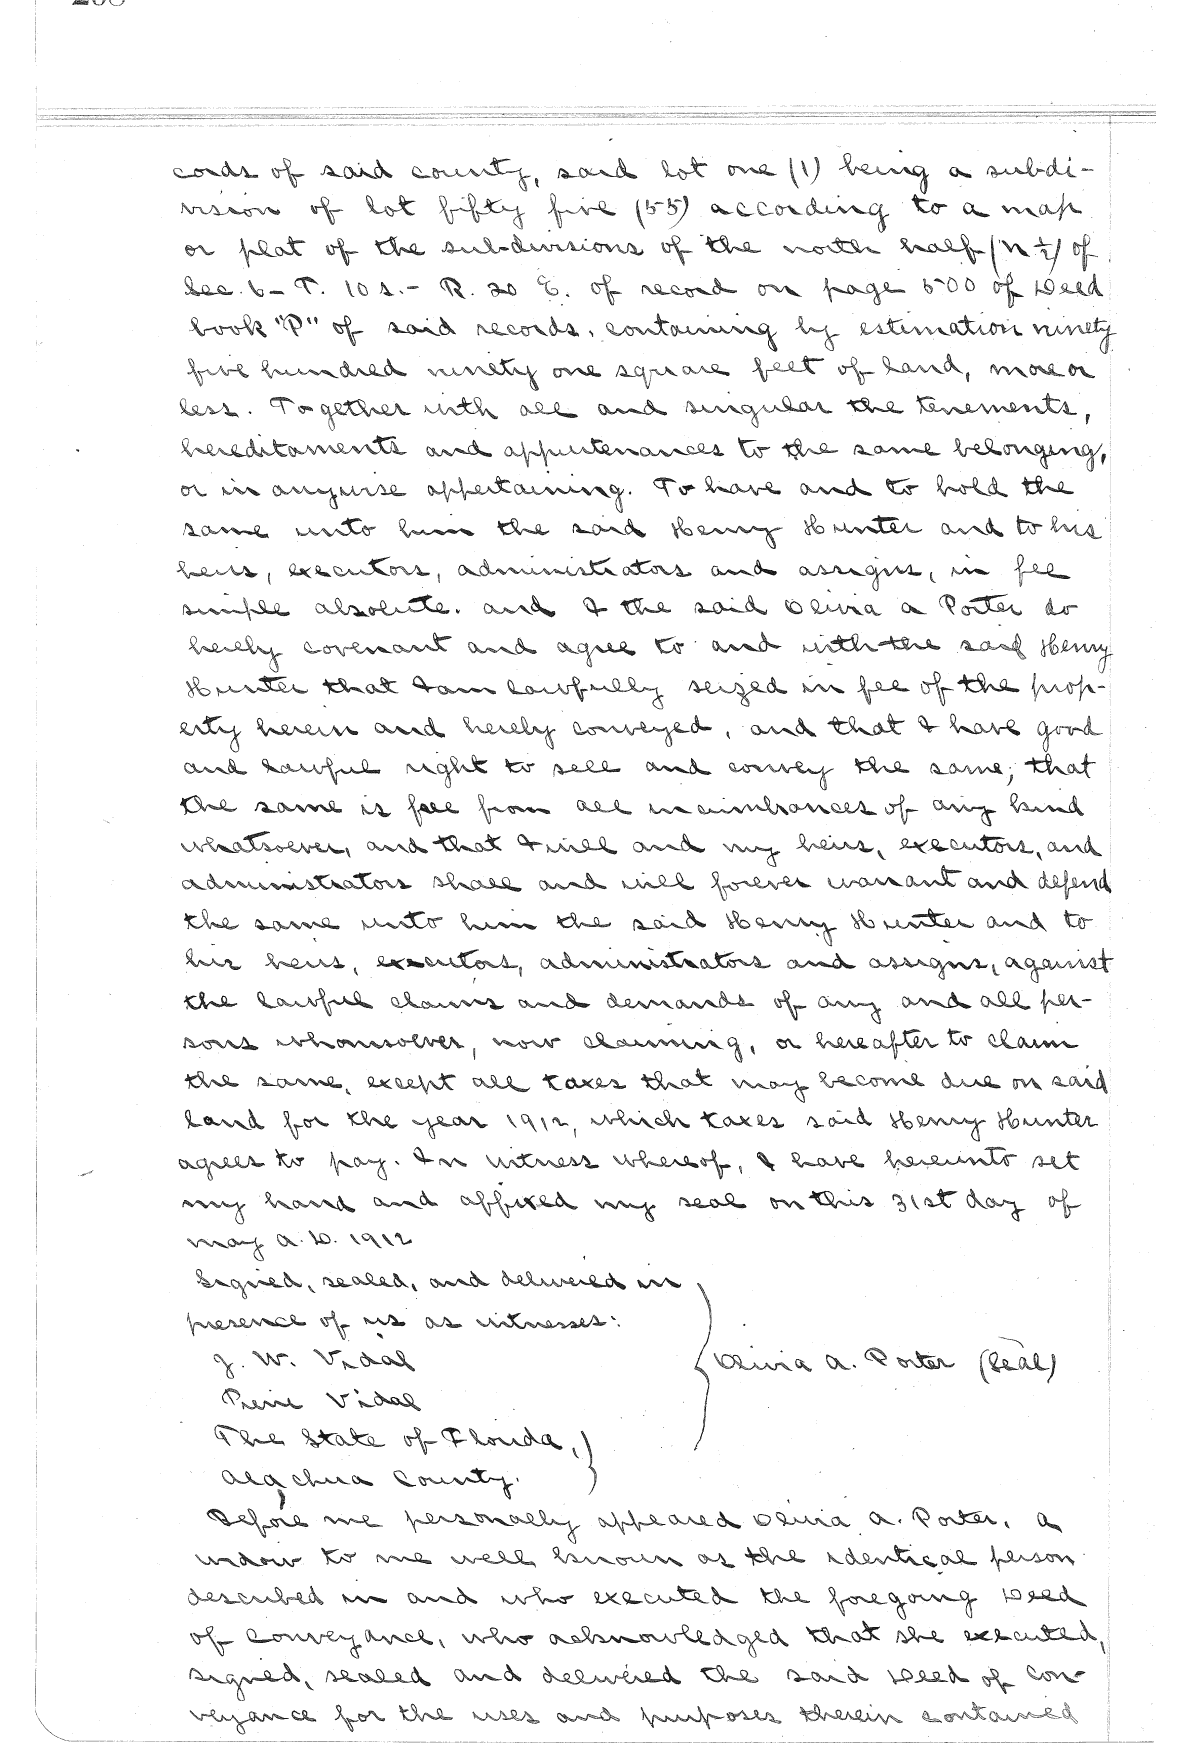 cords of said county, said lot one (1) being a subdi-
vision of lot fifty five (55) according to a map
or plat of the sub-divisions of the north half (N ½) of
Sec. 6 - T. 10 s. - R. 20 E. of record on page 500 of Deed
book "P" of said records, containing by estimation ninety
five hundred ninety one square feet of land, more or
less. Together with all and singular the tenements,
hereditaments and appurtenances to the same belonging,
or in anywise appertaining. To have and to hold the
same unto him the said Henry Hunter and to his
heirs, executors, administrators and assigns, in fee
simple absolute. and I the said Olivia A Porter do
hereby covenant and agree to and with the said Henry
Hunter that I am lawfully seized in fee of the prop-
erty herein and hereby conveyed, and that I have good
and lawful right to sell and convey the same; that
the same is free from all incumbrances of any kind
whatsoever, and that I will and my heirs, executors, and
administrators shall and will forever warrant and defend
the same unto him the said Henry Hunter and to
his heirs, executors, administrators and assigns, against
the lawful claims and demands of any and all per-
sons whomsoever, now claiming, or hereafter to claim
the same, except all taxes that may become due on said
land for the year 1912, which taxes said Henry Hunter
agrees to pay. In witness whereof, I have hereunto set
my hand and affixed my seal on this 31st day of
May A.D. 1912
Signed, sealed, and delivered in
presence of us as witnesses:
J. W. Vidal
Olivia A. Porter (Seal)
Pierre Vidal
The State of Florida,
Alachua County.
Before me personally appeared Olivia A. Porter, a
widow to me well known as the identical person
described in and who executed the foregoing Deed
of Conveyance, who acknowledged that she executed,
signed, sealed and delivered the said Deed of Con-
veyance for the uses and purposes therein contained